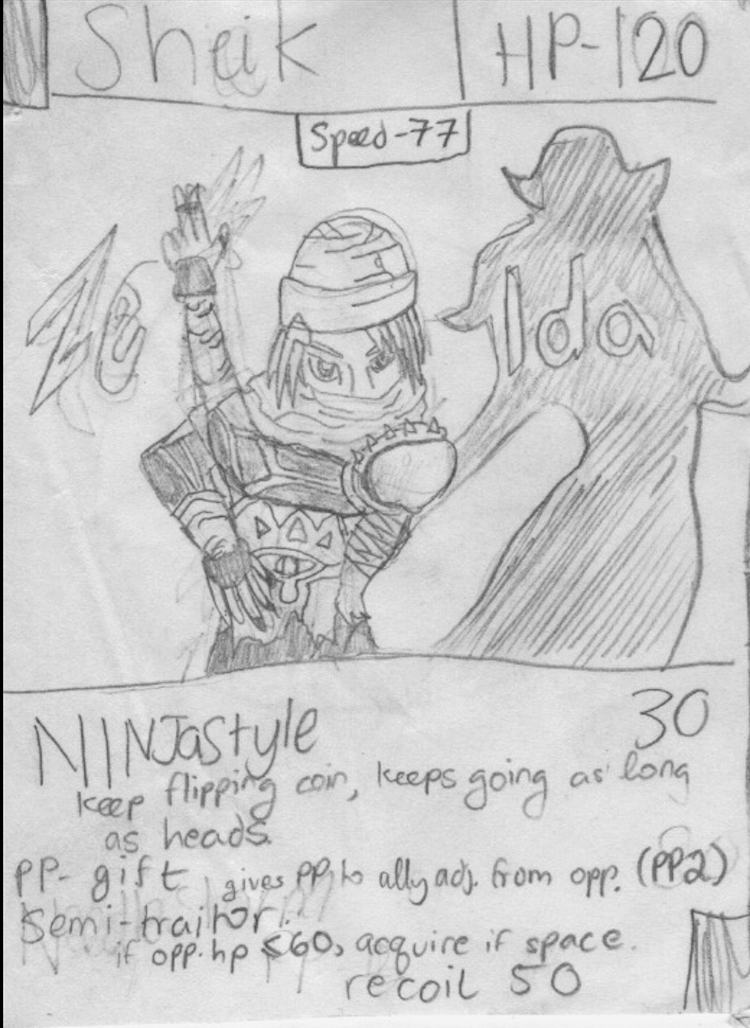 Sheik HP-120
Speed-77
Ze lda
NINJAstyle 30
keep flipping coin, keeps going as long
as heads.
PP- gift, gives PP to ally adj. from opp. (PP2)
Semi-traitor.
if opp. hp ≤60, acquire if space.
recoil 50